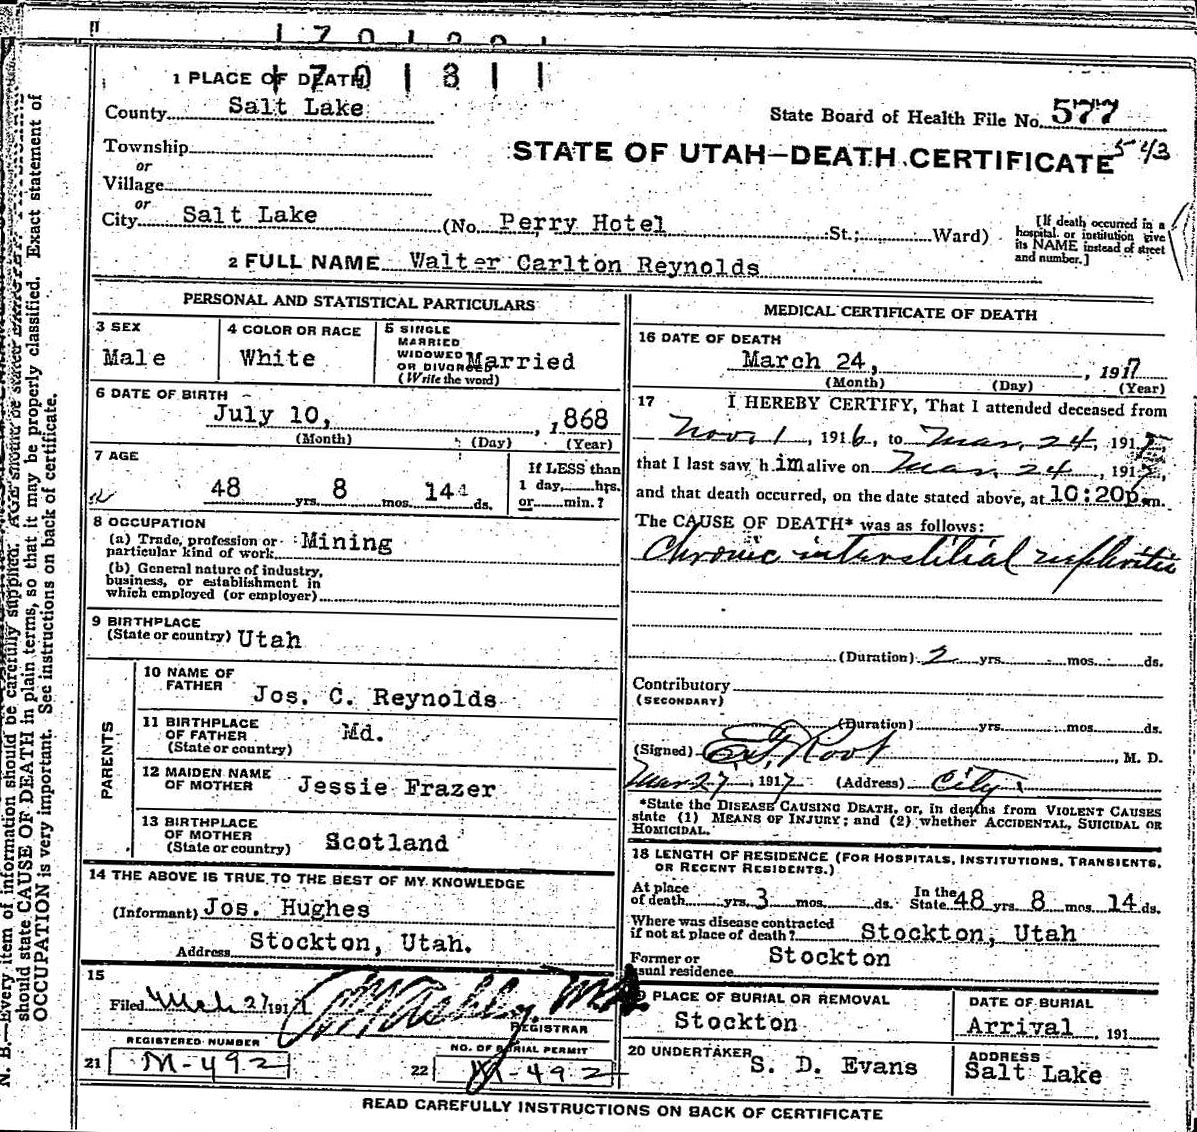 1 PLACE OF DEATH
1 7 0 1 3 1 1
County Salt Lake
State Board of Health File No. 577
543
STATE OF UTAH—DEATH CERTIFICATE
Township
or
Village
or
City Salt Lake (No. Perry Hotel St.; Ward)
[If death occurred in a hospital or institution give its NAME instead of street and number.]
2 FULL NAME Walter Carlton Reynolds
PERSONAL AND STATISTICAL PARTICULARS
3 SEX
Male
4 COLOR OR RACE
White
5 SINGLE
MARRIED
WIDOWED
OR DIVORCED
(Write the word)
Married
6 DATE OF BIRTH
July 10, , 1868
(Month) (Day) (Year)
7 AGE
48 yrs. 8 mos. 14 ds.
If LESS than
1 day, hrs.
or min.?
8 OCCUPATION
(a) Trade, profession or
particular kind of work Mining
(b) General nature of industry,
business, or establishment in
which employed (or employer)
9 BIRTHPLACE
(State or country) Utah
PARENTS
10 NAME OF
FATHER
Jos. C. Reynolds
11 BIRTHPLACE
OF FATHER
(State or country)
Md.
12 MAIDEN NAME
OF MOTHER
Jessie Frazer
13 BIRTHPLACE
OF MOTHER
(State or country)
Scotland
14 THE ABOVE IS TRUE TO THE BEST OF MY KNOWLEDGE
(Informant) Jos. Hughes
Address Stockton, Utah.
15
Filed Mch 27 1917
REGISTRAR
REGISTERED NUMBER
21 M-492
NO. OF BURIAL PERMIT
22 M-492
MEDICAL CERTIFICATE OF DEATH
16 DATE OF DEATH
March 24, , 1917
(Month) (Day) (Year)
17 I HEREBY CERTIFY, That I attended deceased from
Nov. 1, 1916, to Mar. 24, 1917,
that I last saw him alive on Mar. 24, 1917,
and that death occurred, on the date stated above, at 10:20p.m.
The CAUSE OF DEATH* was as follows:
Chronic interstitial nephritis
(Duration) 2 yrs. mos. ds.
Contributory
(SECONDARY)
(Duration) yrs. mos. ds.
(Signed) Root, M. D.
Mar 27, 1917 (Address) City
*State the DISEASE CAUSING DEATH, or, in deaths from VIOLENT CAUSES
state (1) MEANS OF INJURY; and (2) whether ACCIDENTAL, SUICIDAL OR
HOMICIDAL.
18 LENGTH OF RESIDENCE (FOR HOSPITALS, INSTITUTIONS, TRANSIENTS,
OR RECENT RESIDENTS.)
At place
of death yrs. 3 mos. ds.
In the
State 48 yrs. 8 mos. 14 ds.
Where was disease contracted
if not at place of death? Stockton, Utah
Former or
usual residence Stockton
PLACE OF BURIAL OR REMOVAL
Stockton
DATE OF BURIAL
Arrival , 191
20 UNDERTAKER
S. D. Evans
ADDRESS
Salt Lake
READ CAREFULLY INSTRUCTIONS ON BACK OF CERTIFICATE
N. B.—Every item of information should be carefully supplied. AGE should be stated
should state CAUSE OF DEATH in plain terms, so that it may be properly classified. Exact statement of
OCCUPATION is very important. See instructions on back of certificate.